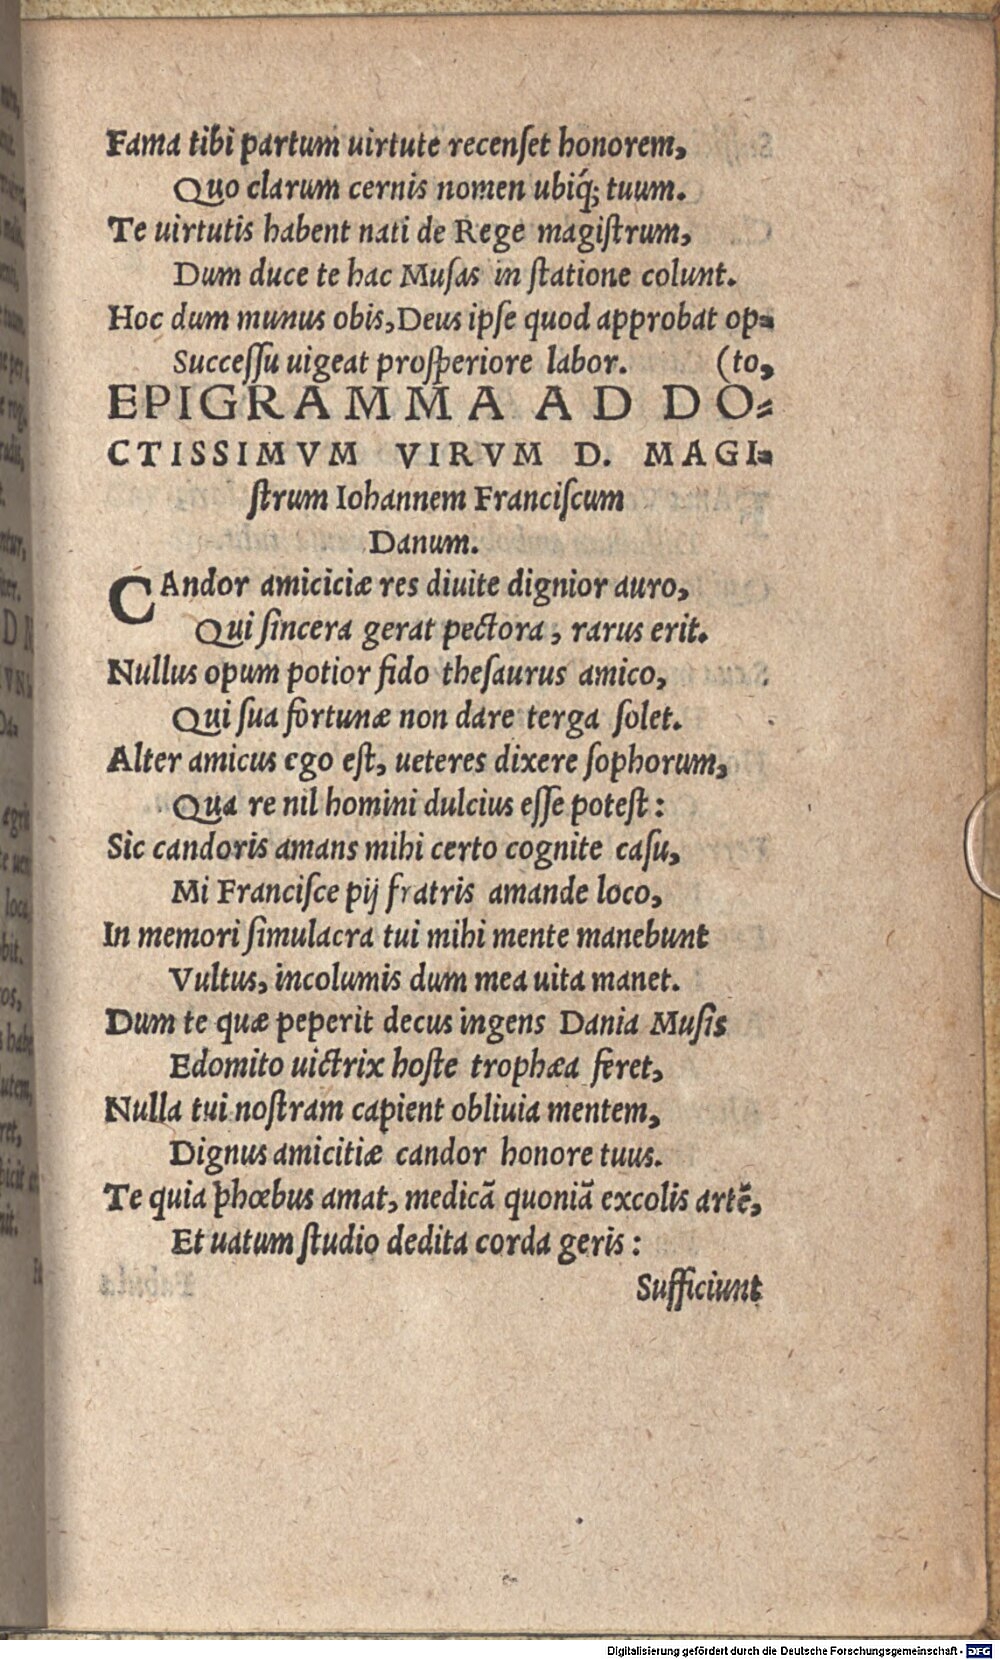 Fama tibi partum uirtute recenſet honorem,
Quo clarum cernis nomen ubiq́; tuum.
Te uirtutis habent nati de Rege magiſtrum,
Dum duce te hac Muſas in ſtatione colunt.
Hoc dum munus obis, Deus ipſe quod approbat op-
Succeſſu uigeat proſperiore labor. (to,
EPIGRAMMA AD DO-
CTISSIMVM VIRVM D. MAGI-
ſtrum Iohannem Franciſcum
Danum.
CAndor amiciciæ res diuite dignior auro,
Qui ſincera gerat pectora, rarus erit.
Nullus opum potior fido theſaurus amico,
Qui ſua fortunæ non dare terga ſolet.
Alter amicus ego eſt, ueteres dixere ſophorum,
Qua re nil homini dulcius eſſe poteſt:
Sic candoris amans mihi certo cognite caſu,
Mi Franciſce pij fratris amande loco,
In memori ſimulacra tui mihi mente manebunt
Vultus, incolumis dum mea uita manet.
Dum te quæ peperit decus ingens Dania Muſis
Edomito uictrix hoſte trophæa feret,
Nulla tui noſtram capient obliuia mentem,
Dignus amicitiæ candor honore tuus.
Te quia phœbus amat, medicã quoniã excolis artẽ,
Et uatum ſtudio dedita corda geris:
Sufficiunt
Digitalisierung gefördert durch die Deutsche Forschungsgemeinschaft - DFG